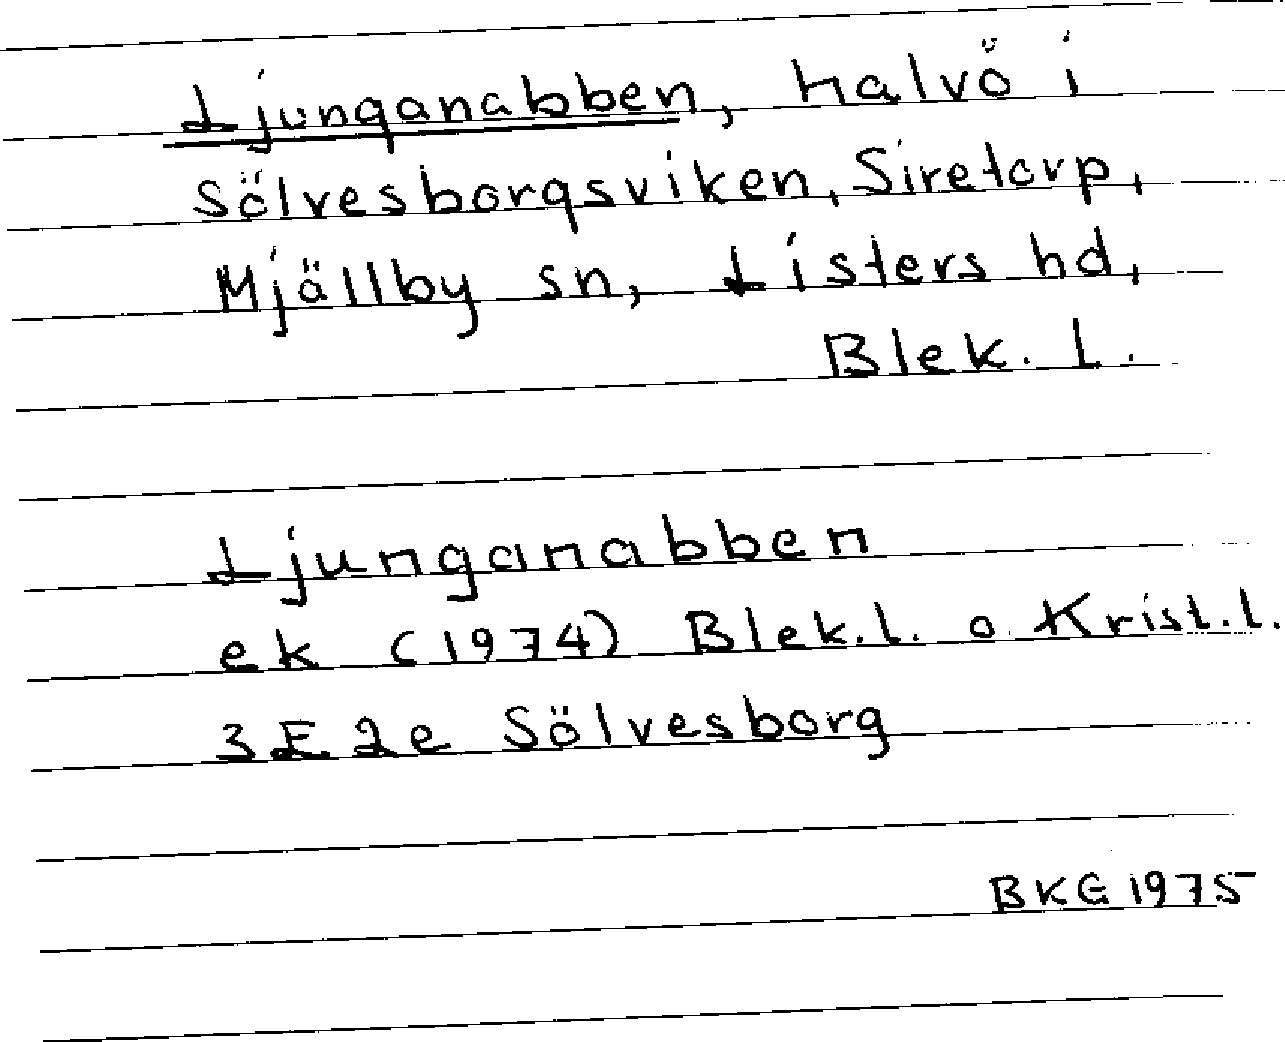 Ljunganabben, halvö i
Sölvesborgsviken, Siretorp,
Mjällby sn, Listers hd,
Blek. l.
Ljunganabben
ek (1974) Blek.l. o. Krist.l.
3E2e Sölvesborg
BKG 1975